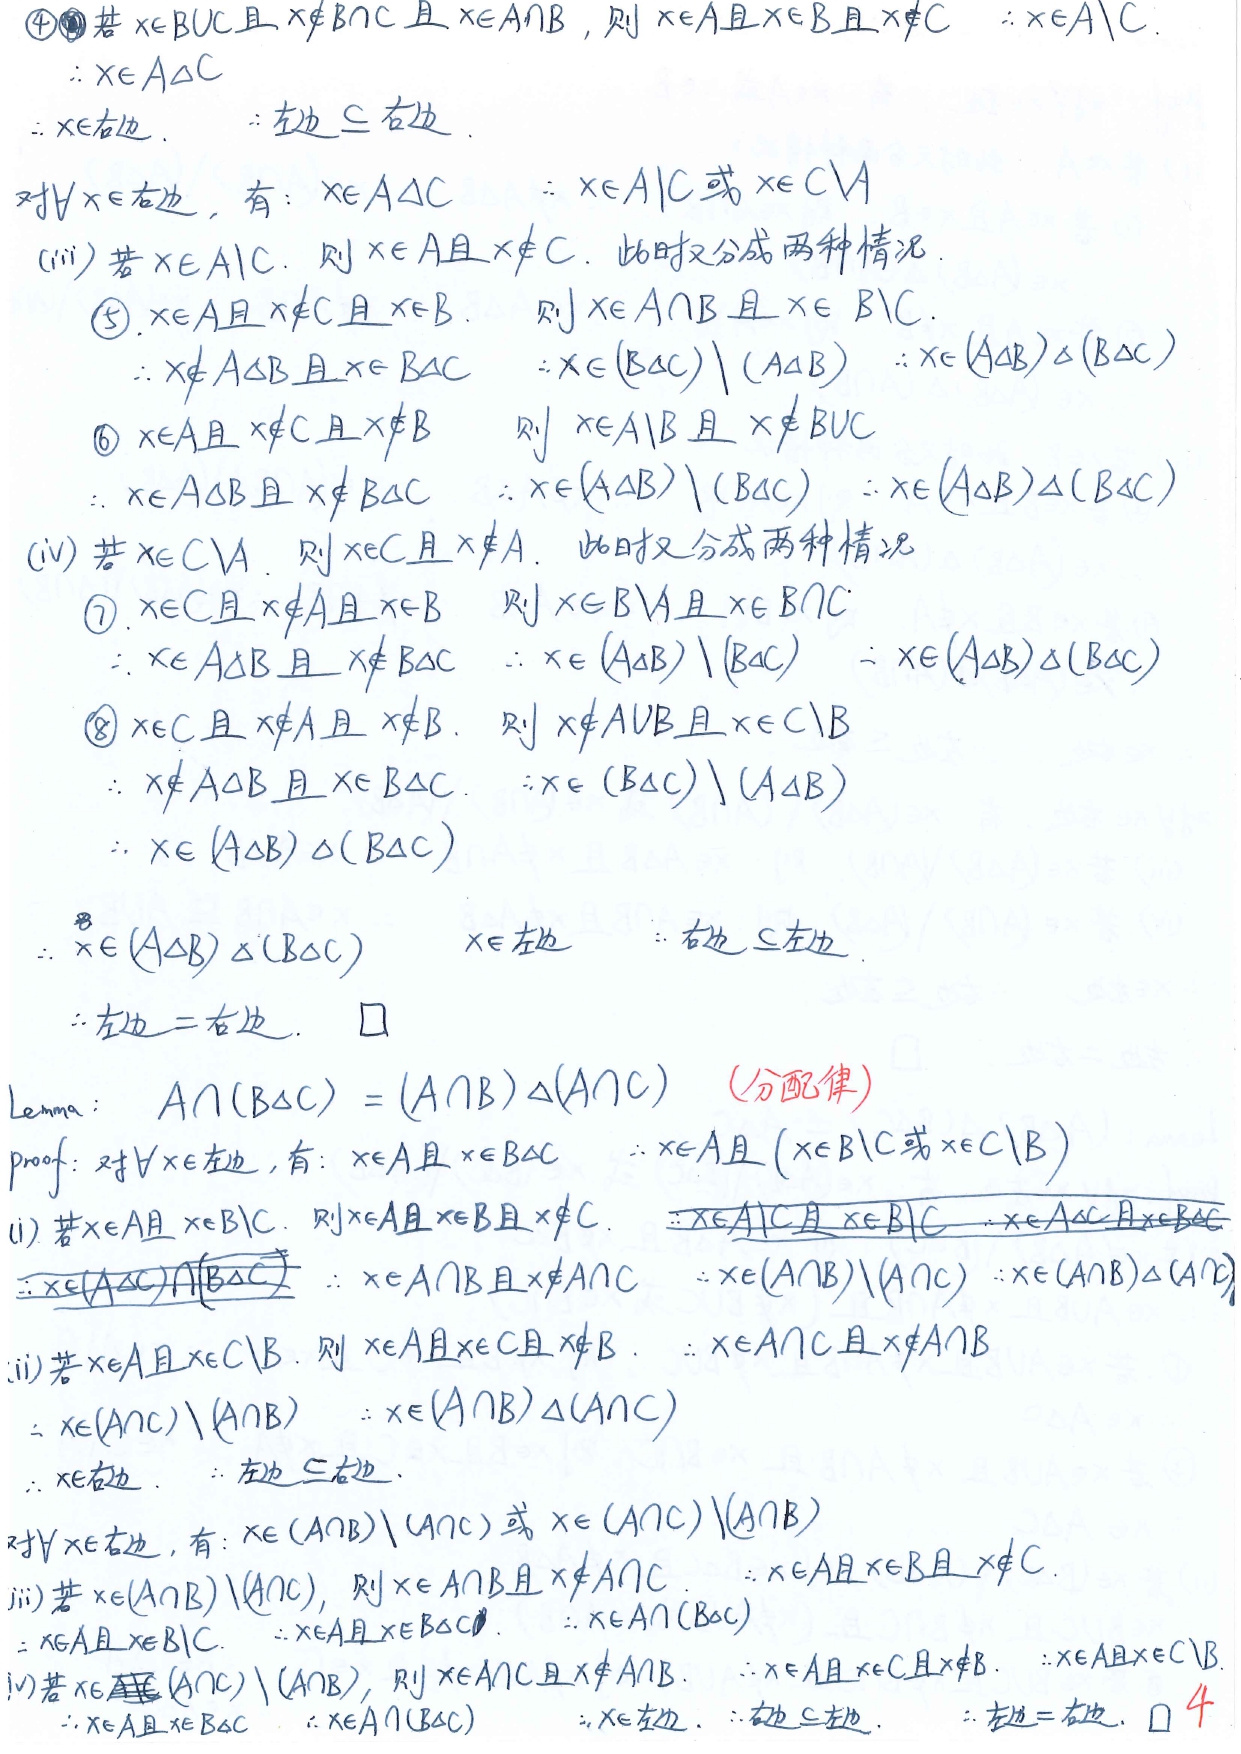 ④ 若 x∈B∪C且 x∉B∩C 且 x∈A∩B , 则 x∈A且x∈B且x∉C ∴ x∈A\C.
∴ x∈A△C
∴ x∈右边. ∴ 左边 ⊆ 右边.
对∀x∈右边, 有: x∈A△C ∴ x∈A\C 或 x∈C\A
(iii) 若 x∈A\C. 则 x∈A且x∉C. 此时又分成两种情况.
⑤. x∈A且x∉C且x∈B. 则 x∈A∩B 且 x∈ B\C.
∴ x∉A△B 且 x∈B△C ∴ x∈(B△C)\(A△B) ∴ x∈(A△B)△(B△C)
⑥ x∈A且 x∉C且x∉B 则 x∈A\B 且 x∉B∪C
∴ x∈A△B且 x∉B△C ∴ x∈(A△B)\(B△C) ∴ x∈(A△B)△(B△C)
(iv) 若 x∈C\A. 则 x∈C且x∉A. 此时又分成两种情况
⑦. x∈C且x∉A且x∈B 则 x∈B\A且x∈B∩C
∴ x∈A△B 且 x∉B△C ∴ x∈(A△B)\(B△C) ∴ x∈(A△B)△(B△C)
⑧ x∈C且 x∉A且 x∉B. 则 x∉A∪B且x∈C\B
∴ x∉A△B 且 x∈B△C. ∴ x∈(B△C)\(A△B)
∴ x∈(A△B)△(B△C)
∴ x∈(A△B)△(B△C) x∈左边 ∴ 右边⊆左边.
∴ 左边=右边. □
Lemma: A∩(B△C) = (A∩B)△(A∩C) (分配律)
proof: 对∀x∈左边, 有: x∈A且x∈B△C ∴ x∈A且(x∈B\C或x∈C\B)
(i) 若x∈A且 x∈B\C. 则x∈A且x∈B且x∉C. ∴ x∈A\C且 x∈B\C ∴ x∈A△C且x∈B△C
∴ x∈(A△C)∩(B△C) ∴ x∈A∩B且x∉A∩C ∴ x∈(A∩B)\(A∩C) ∴ x∈(A∩B)△(A∩C)
(ii) 若x∈A且x∈C\B. 则 x∈A且x∈C且x∉B. ∴ x∈A∩C且x∉A∩B
∴ x∈(A∩C)\(A∩B) ∴ x∈(A∩B)△(A∩C)
∴ x∈右边. ∴ 左边⊆右边.
对∀x∈右边, 有: x∈(A∩B)\(A∩C) 或 x∈(A∩C)\(A∩B)
(iii) 若 x∈(A∩B)\(A∩C), 则 x∈A∩B且x∉A∩C. ∴ x∈A且x∈B且x∉C.
∴ x∈A且x∈B\C. ∴ x∈A且x∈B△C. ∴ x∈A∩(B△C)
(iv) 若 x∈(A∩C)\(A∩B), 则 x∈A∩C且x∉A∩B. ∴ x∈A且x∈C且x∉B. ∴ x∈A且x∈C\B.
∴ x∈A且x∈B△C ∴ x∈A∩(B△C) ∴ x∈左边. ∴ 右边⊆左边. ∴ 左边=右边. □ 4